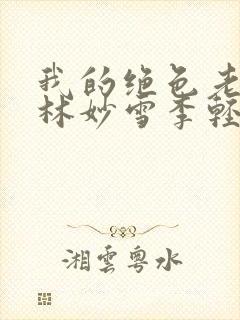 我的绝色老
林妙雪季轻
湘雲粤水